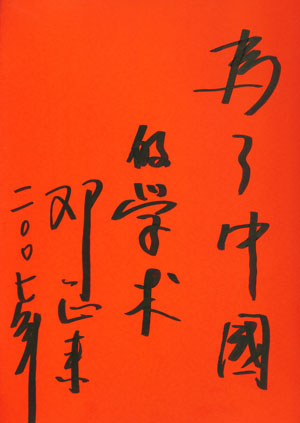 为了中國
的学术
邓正来
二〇〇七年